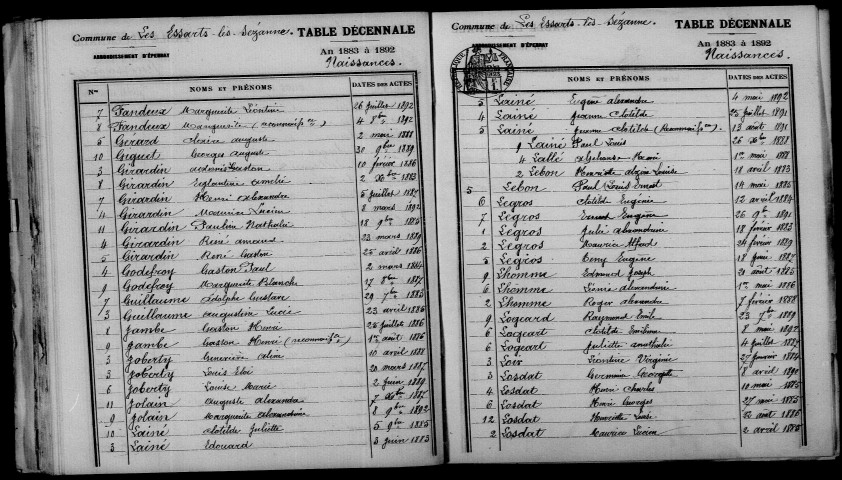 Commune de Les Essarts-lès-Sézanne.
TABLE DÉCENNALE
ARRONDISSEMENT D'ÉPERNAY
An 1883 à 1892
Naissances.
Nos NOMS ET PRÉNOMS DATES DES ACTES
7 Fandeux Marguerite Léontine 26 juillet 1892
8 Fandeux Marguerite (reconnaiss ce) 4 8bre 1892
5 Gérard Claire Auguste 2 mai 1888
10 Geguet Georges Auguste 30 9bre 1889
3 Girardin Gaston 10 février 1886
8 Girardin Eglantine Amélie 2 Xbre 1883
7 Girardin Henri Alexandre 5 juillet 1887
4 Girardin Maurice Lucien 8 mars 1892
11 Girardin Pauline Nathalie 18 9bre 1885
4 Girardin René Amand 23 mars 1889
5 Girardin René Gaston 25 avril 1886
4 Godefroy Gaston Paul 2 mars 1884
9 Godefroy Marguerite Blanche 17 8bre 1887
7 Guillaume Adolphe Gustave 29 7bre 1885
3 Guillaume Augustine Lucie 23 avril 1885
8 Jambe Gaston Henri 25 juillet 1886
9 Jambe Gaston Henri (reconnaiss ce) 1er août 1886
3 Joberty Geneviève Aline 10 avril 1888
3 Joberty Louis Eloi 20 mars 1887
6 Joberty Louise Marie 2 juin 1889
11 Jolain Auguste Alexandre 7 Xbre 1887
9 Jolain Marguerite Alexandrine 8 9bre 1892
10 Lainé Clotilde Juliette 5 9bre 1885
3 Lainé Edouard 3 juin 1883
Commune de Les Essarts-lès-Sézanne.
TABLE DÉCENNALE
ARRONDISSEMENT D'ÉPERNAY
An 1883 à 1892
Naissances.
NOMS ET PRÉNOMS DATES DES ACTES
5 Lainé Eugène Alexandre 4 mai 1892
4 Lainé Jeanne Clotilde 25 juillet 1891
5 Lainé Jeanne Clotilde (Reconnaiss ce) 13 août 1891
9 Lainé Paul Louis 26 Xbre 1888
4 Lallé Alphonse Henri 1er mai 1888
2 Lebon Henriette Louise 18 avril 1883
5 Lebon Paul Louis Ernest 14 mai 1885
6 Legros Clotilde Eugénie 12 avril 1884
7 Legros Ernest Eugène 26 9bre 1891
1 Legros Julie Alexandrine 18 février 1883
2 Legros Maurice Alfred 24 février 1889
5 Legros Remy Eugène 18 juin 1887
9 Lhomme Edmond Joseph 20 août 1885
6 Lhomme Léonie Alexandrine 1er mai 1886
2 Lhomme Roger Alexandre 7 février 1888
9 Logeard Raymond Emile 23 7bre 1889
6 Logeart Clotilde Emilienne 8 mai 1892
6 Logeart Juliette Anathalie 4 juillet 1887
3 Loir Léontine Virginie 27 janvier 1884
3 Losdat Germaine Georgette 8 avril 1890
4 Losdat Henri Charles 10 mai 1885
6 Losdat Henri Georges 27 mai 1885
12 Losdat Henriette 22 août 1886
2 Losdat Maurice Lucien 2 avril 1885